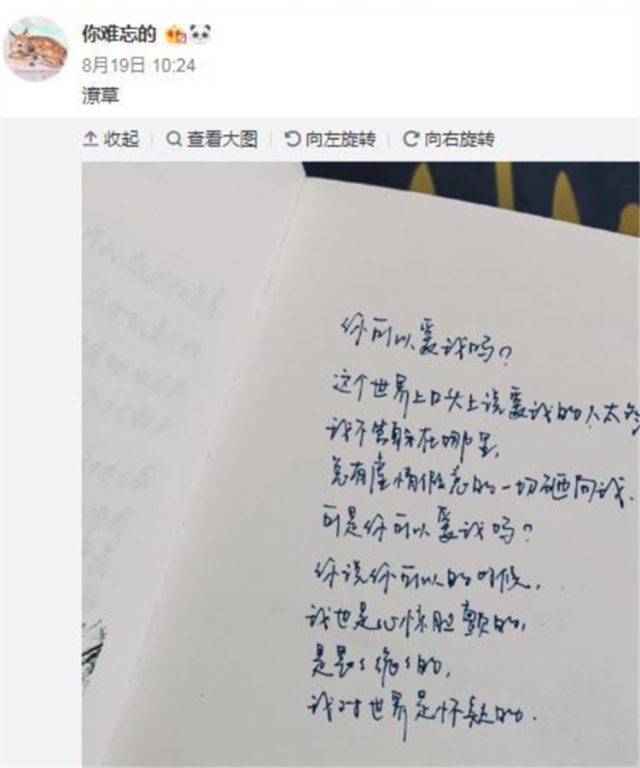 你难忘的
8月19日 10:24
潦草
收起 查看大图 向左旋转 向右旋转
你可以爱我吗?
这个世界上口头上说爱我的人太多
我不管躲在哪里,
总有虚情假意的一切砸向我.
可是你可以爱我吗?
你说你可以的时候,
我也是心惊胆颤的,
是 的,
我对世界是怀疑的.